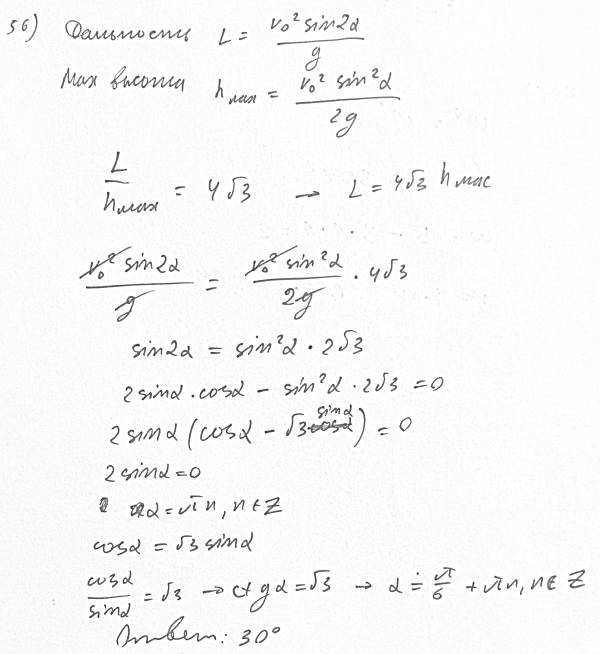 56) Дальность L = v₀² sin2α / g
Max высота h max = v₀² sin²α / 2g
L / hmax = 4√3 → L = 4√3 h мас
v₀² sin2α / g = v₀² sin²α / 2g · 4√3
sin2α = sin²α · 2√3
2 sinα · cosα − sin²α · 2√3 = 0
2 sinα (cosα − √3 sinα) = 0
2 sinα = 0
α = πn, n ∈ Z
cosα = √3 sinα
cosα / sinα = √3 → ctgα = √3 → α = π/6 + πn, n ∈ Z
Ответ: 30°